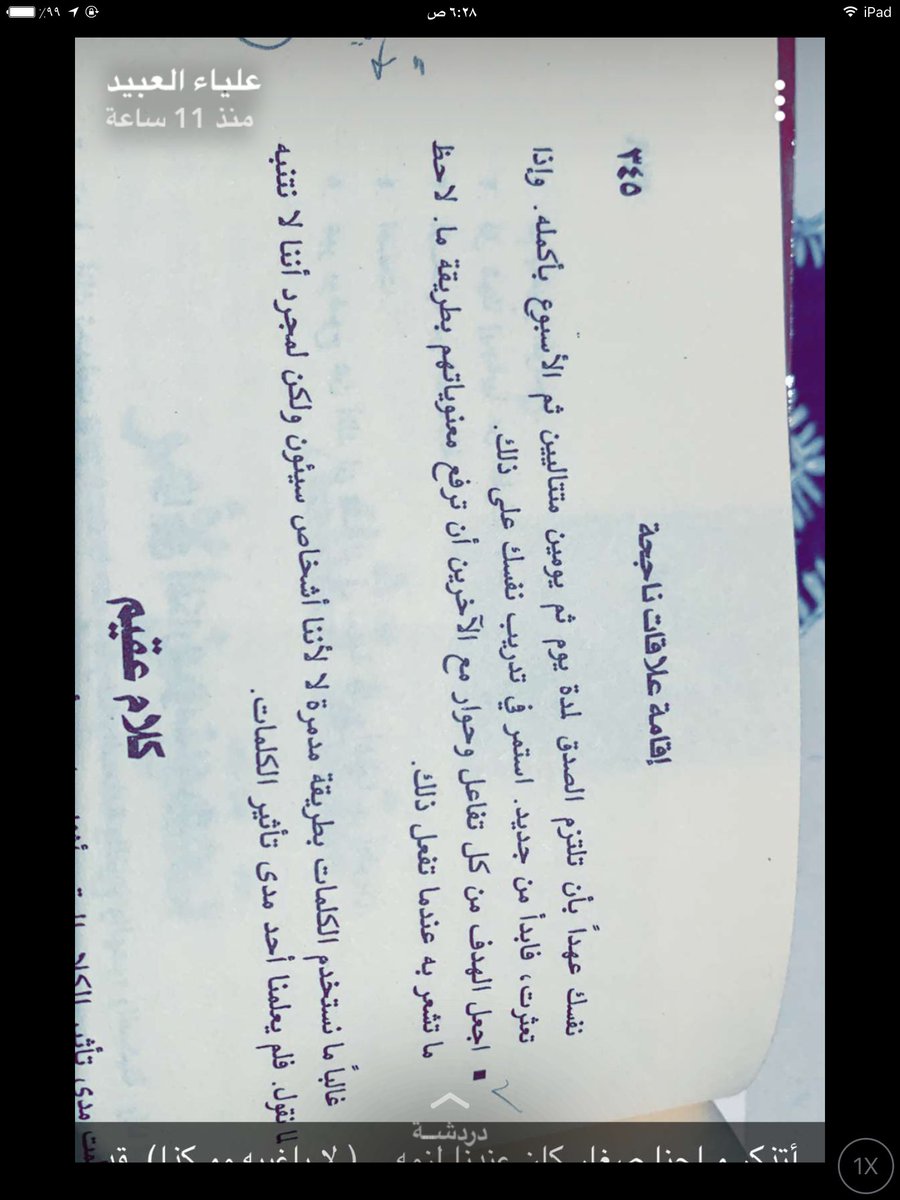 iPad
٦:٢٨ ص
٪٩٩
علياء العبيد
منذ 11 ساعة
إقامة علاقات ناجحة
٣٤٥
نفسك عهداً بأن تلتزم الصدق لمدة يوم ثم يومين متتاليين ثم الأسبوع بأكمله. وإذا
تعثرت، فابدأ من جديد. استمر في تدريب نفسك على ذلك.
■ اجعل الهدف من كل تفاعل وحوار مع الآخرين أن ترفع معنوياتهم بطريقة ما. لاحظ
ما تشعر به عندما تفعل ذلك.
غالباً ما نستخدم الكلمات بطريقة مدمرة لا لأننا أشخاص سيئون ولكن لمجرد أننا لا نتنبه
لما نقول. فلم يعلمنا أحد مدى تأثير الكلمات.
كلام عقيم
مدى تأثير
دردشة
كان عندنا
1X